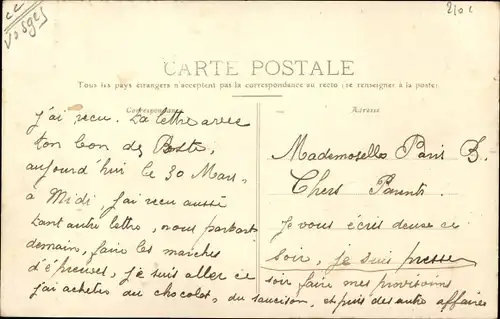 cc
Vosges
210 c
CARTE POSTALE
Tous les pays étrangers n'acceptent pas la correspondance au recto (se renseigner à la poste)
Correspondance
Adresse
Mademoiselle Paris B.
Chers Parents
je vous écris deuse ce
soir, je suis presse
soir faire mes provisoins
et puis des autre affaires
j'ai recu. La lettre avec
ton bon de Poste,
aujourd'hui le 30 Mars
à Midi, j'ai recu aussi
tant autre lettre, nous partont
demain, faire les marches
d'épreuves, je suis aller ce
j'ai achetez du chocolat, du saucison,